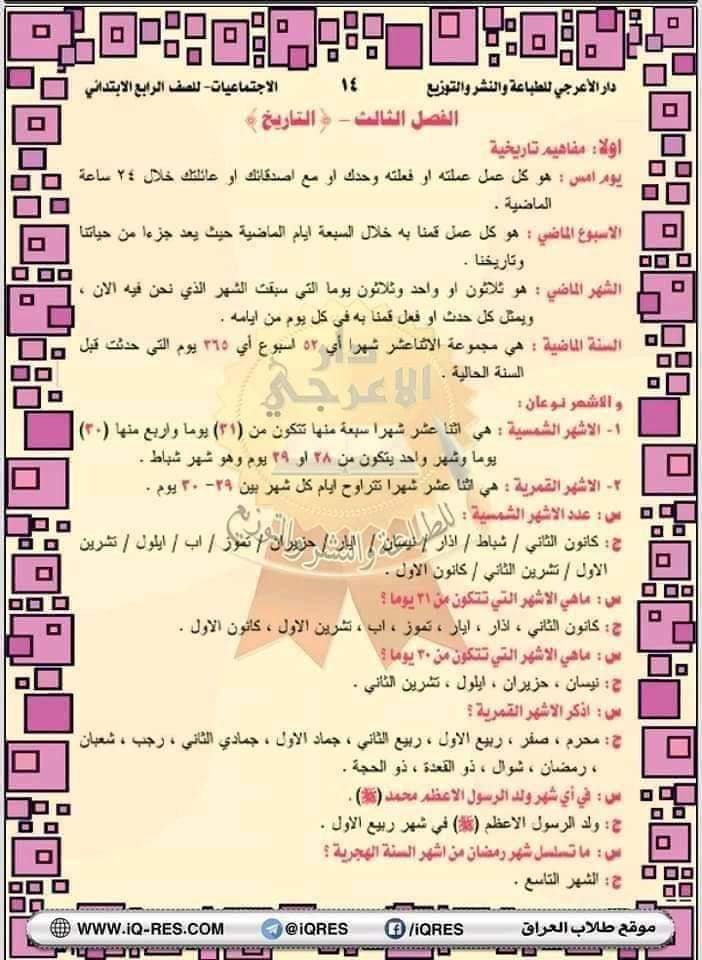 دار الأعرجي للطباعة والنشر والتوزيع ١٤ الاجتماعيات- للصف الرابع الابتدائي
الفصل الثالث - ﴿ التاريخ ﴾
اولا: مفاهيم تاريخية
يوم امس : هو كل عمل عملته او فعلته وحدك او مع اصدقائك او عائلتك خلال ٢٤ ساعة
الماضية .
الاسبوع الماضي : هو كل عمل قمنا به خلال السبعة ايام الماضية حيث يعد جزءا من حياتنا
وتاريخنا .
الشهر الماضي : هو ثلاثون او واحد وثلاثون يوما التي سبقت الشهر الذي نحن فيه الان ،
ويمثل كل حدث او فعل قمنا به في كل يوم من ايامه .
السنة الماضية : هي مجموعة الاثناعشر شهرا أي ٥٢ اسبوع أي ٣٦٥ يوم التي حدثت قبل
السنة الحالية .
و الاشهر نوعان :
١- الاشهر الشمسية : هي اثنا عشر شهرا سبعة منها تتكون من (٣١) يوما واربع منها (٣٠)
يوما وشهر واحد يتكون من ٢٨ او ٢٩ يوم وهو شهر شباط .
٢- الاشهر القمرية : هي اثنا عشر شهرا تتراوح ايام كل شهر بين ٢٩- ٣٠ يوم .
س : عدد الاشهر الشمسية :
ج : كانون الثاني / شباط / اذار / نيسان / ايار / حزيران / تموز / اب / ايلول / تشرين
الاول / تشرين الثاني / كانون الاول .
س : ماهي الاشهر التي تتكون من ٣١ يوما ؟
ج : كانون الثاني ، اذار ، ايار ، تموز ، اب ، تشرين الاول ، كانون الاول .
س : ماهي الاشهر التي تتكون من ٣٠ يوما ؟
ج : نيسان ، حزيران ، ايلول ، تشرين الثاني .
س : اذكر الاشهر القمرية ؟
ج : محرم ، صفر ، ربيع الاول ، ربيع الثاني ، جماد الاول ، جمادي الثاني ، رجب ، شعبان
، رمضان ، شوال ، ذو القعدة ، ذو الحجة .
س : في أي شهر ولد الرسول الاعظم محمد (ﷺ) .
ج : ولد الرسول الاعظم (ﷺ) في شهر ربيع الاول .
س : ما تسلسل شهر رمضان من اشهر السنة الهجرية ؟
ج : الشهر التاسع .
دار
الاعرجي
للطباعة والنشر والتوزيع
موقع طلاب العراق /iQRES @iQRES WWW.iQ-RES.COM